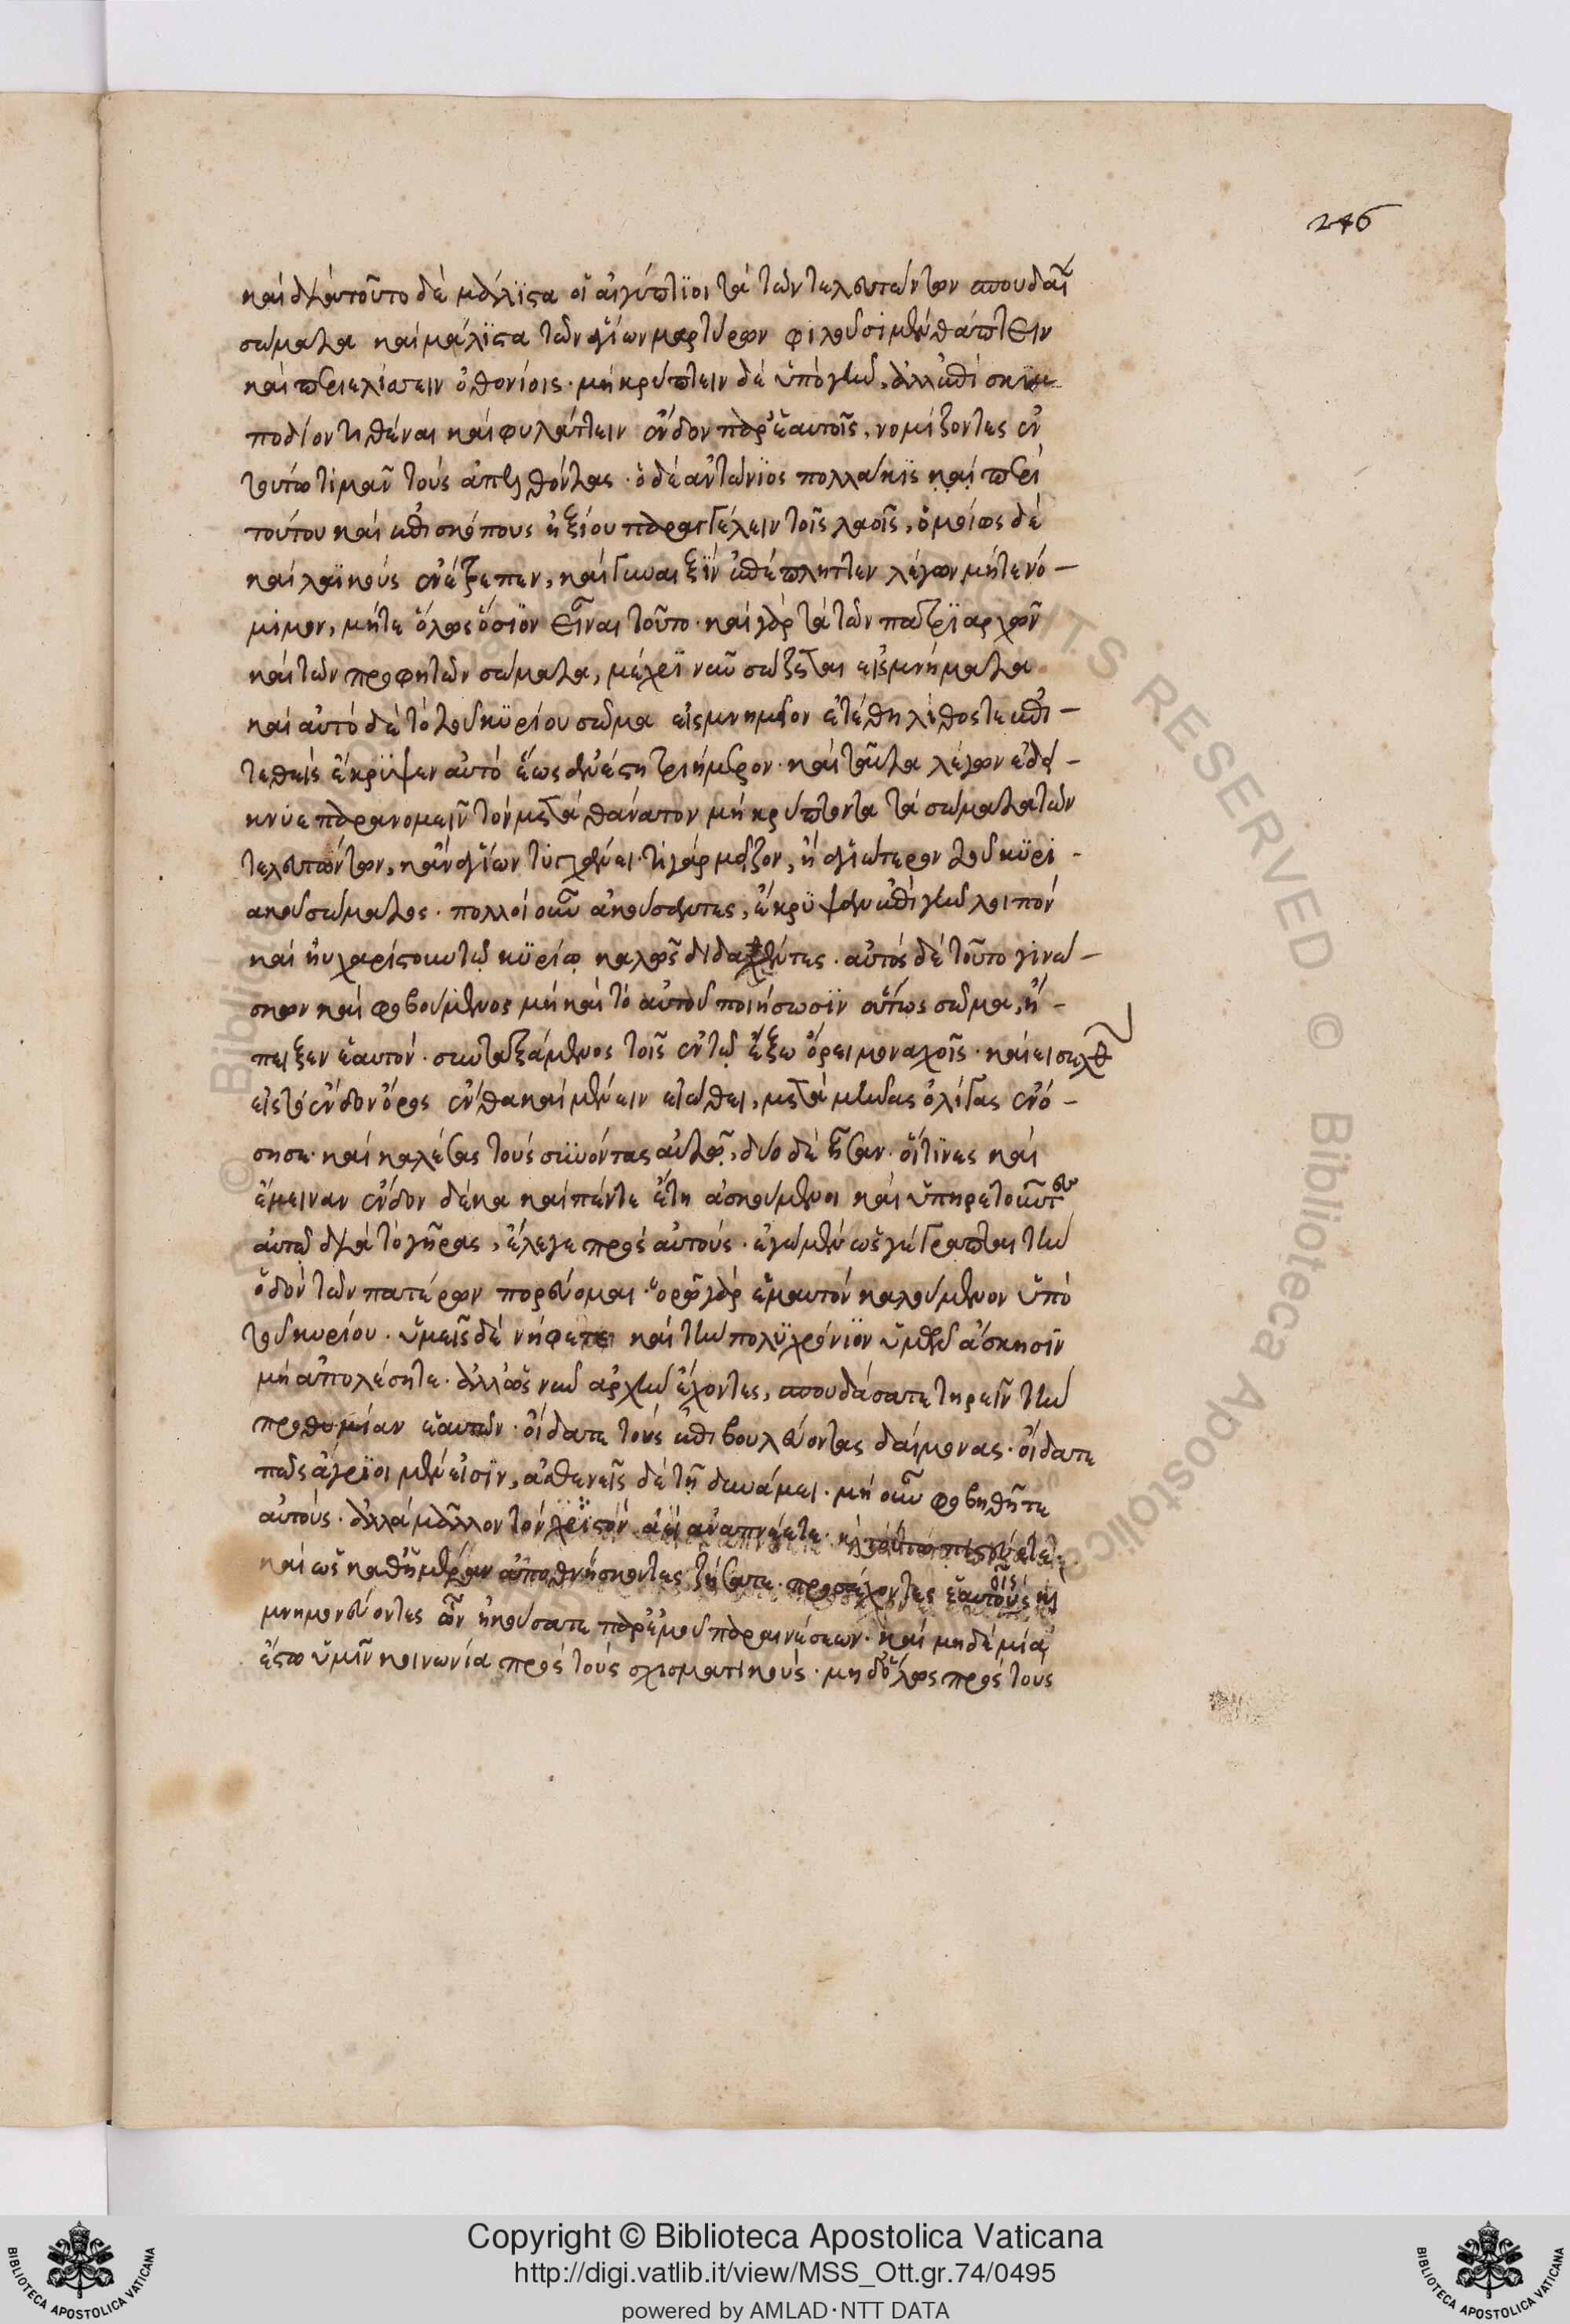 246
καὶ διὰ τοῦτο δὲ μάλϊστα οἱ αἰγύπτϊοι τὰ τῶν τελευτώντων σπουδαῖ
σώματα καὶ μάλϊστα τῶν ἁγίων μαρτύρων φιλοῦσι μὲν θάπτειν
καὶ περιελίσσειν ὀθονίοις· μὴ κρύπτειν δὲ ὑπὸ γῆν, ἀλλ' ἐπὶ σκϊμ
ποδίον τιθέναι καὶ φυλάττειν ἔνδον παρ' ἑαυτοῖς, νομίζοντες ἐν
τούτω τιμᾶν τοὺς ἀπελθόντας· ὁ δὲ ἀντώνϊος πολλάκϊς καὶ περὶ
τούτου καὶ ἐπισκόπους ἠξίου παραγγέλειν τοῖς λαοῖς, ὁμοίως δὲ
καὶ λαϊκοὺς ἐνέτρεπεν, καὶ γυναιξὶν ἐπέπληττεν λέγων μήτε νό-
μιμον, μήτε ὅλως ὅσϊον εἶναι τοῦτο· καὶ γὰρ τὰ τῶν πατρϊαρχῶν
καὶ τῶν προφητῶν σώματα, μέχρϊ νῦν σώζεται εἰς μνήματα
καὶ αὐτὸ δὲ τὸ τοῦ κϋρίου σῶμα εἰς μνημεῖον ἐτέθη λίθος τε ἐπι-
τεθεὶς ἔκρϋψεν αὐτὸ ἕως ἀνέστη τριήμερον· καὶ ταῦτα λέγων ἐδεί-
κνυε παρανομεῖν τὸν μετὰ θάνατον μὴ κρύπτοντα τὰ σώματα τῶν
τελευτώντων, κἂν ἁγίων τυγχάνει· τί γὰρ μεῖζον, ἢ ἁγιώτερον τοῦ κϋρι-
ακοῦ σώματος· πολλοὶ οὖν ἀκούσαντες, ἔκρϋψαν ἐπὶ γῆν λοιπὸν
καὶ ηὐχαρίστουν τῷ κϋρίῳ καλῶς διδαχθέντες· αὐτὸς δὲ τοῦτο γινώ-
σκων καὶ φοβούμενος μὴ καὶ τὸ αὐτοῦ ποιήσωσϊν οὕτως σῶμα, ἤ-
πειξεν ἑαυτὸν· συνταξάμενος τοῖς ἐν τῷ ἔξω ὄρει μοναχοῖς· καὶ εἰσελθ
εἰς τὸ ἔνδον ὄρος ἔνθα καὶ μένειν εἰώθει, μετὰ μῆνας ὀλίγας ἐνό-
σησε· καὶ καλέσας τοὺς σϋνόντας αὐτῷ, δύο δὲ ἦσαν· οἵτϊνες καὶ
ἔμειναν ἔνδον δέκα καὶ πέντε ἔτη ἀσκούμενοι καὶ ὑπηρετοῦντες
αὐτῷ διὰ τὸ γῆρας, ἔλεγε πρὸς αὐτούς· ἐγὼ μὲν ὡς γέγραπται τὴν
ὁδὸν τῶν πατέρων πορεύομαι· ὁρῶ γὰρ ἐμαυτὸν καλούμενον ὑπὸ
τοῦ κυρίου· ὑμεῖς δὲ νήφετε καὶ τὴν πολϋχρόνϊον ὑμῶν ἄσκησϊν
μὴ ἀπολέσητε· ἀλλ' ὡς νῦν ἀρχὴν ἔχοντες, σπουδάσατε τηρεῖν τὴν
προθυμίαν ἑαυτῶν· οἴδατε τοὺς ἐπιβουλεύοντας δαίμονας· οἴδατε
πῶς ἄγρϊοι μὲν εἰσϊν, ἀσθενεῖς δὲ τῇ δυνάμει· μὴ οὖν φοβηθῆτε
αὐτούς· ἀλλὰ μᾶλλον τὸν χρϊστὸν ἀεὶ ἀναπνέετε· κ τούτω πιστεύετε
καὶ ὡς καθημέραν ἀποθνήσκοντες ζήσατε· προσέχοντες ἑαυτοῖς κ
μνημονεύοντες ὧν ἠκούσατε παρ' ἐμοῦ παραινέσεων· καὶ μηδεμία
ἔστω ὑμῖν κοινωνία πρὸς τοὺς σχισματικούς· μηδ' ὅλως πρὸς τοὺς
Copyright © Biblioteca Apostolica Vaticana
http://digi.vatlib.it/view/MSS_Ott.gr.74/0495
powered by AMLAD·NTT DATA